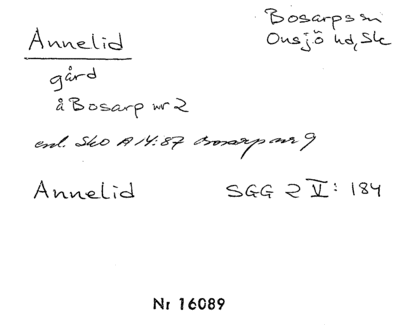 Annelid
Bosarps sn
Onsjö hd, Sk
gård
å Bosarp nr 2
enl. SkO A 14:87 Bosarp nr 9
Annelid SGG 2 V: 184
Nr 16089